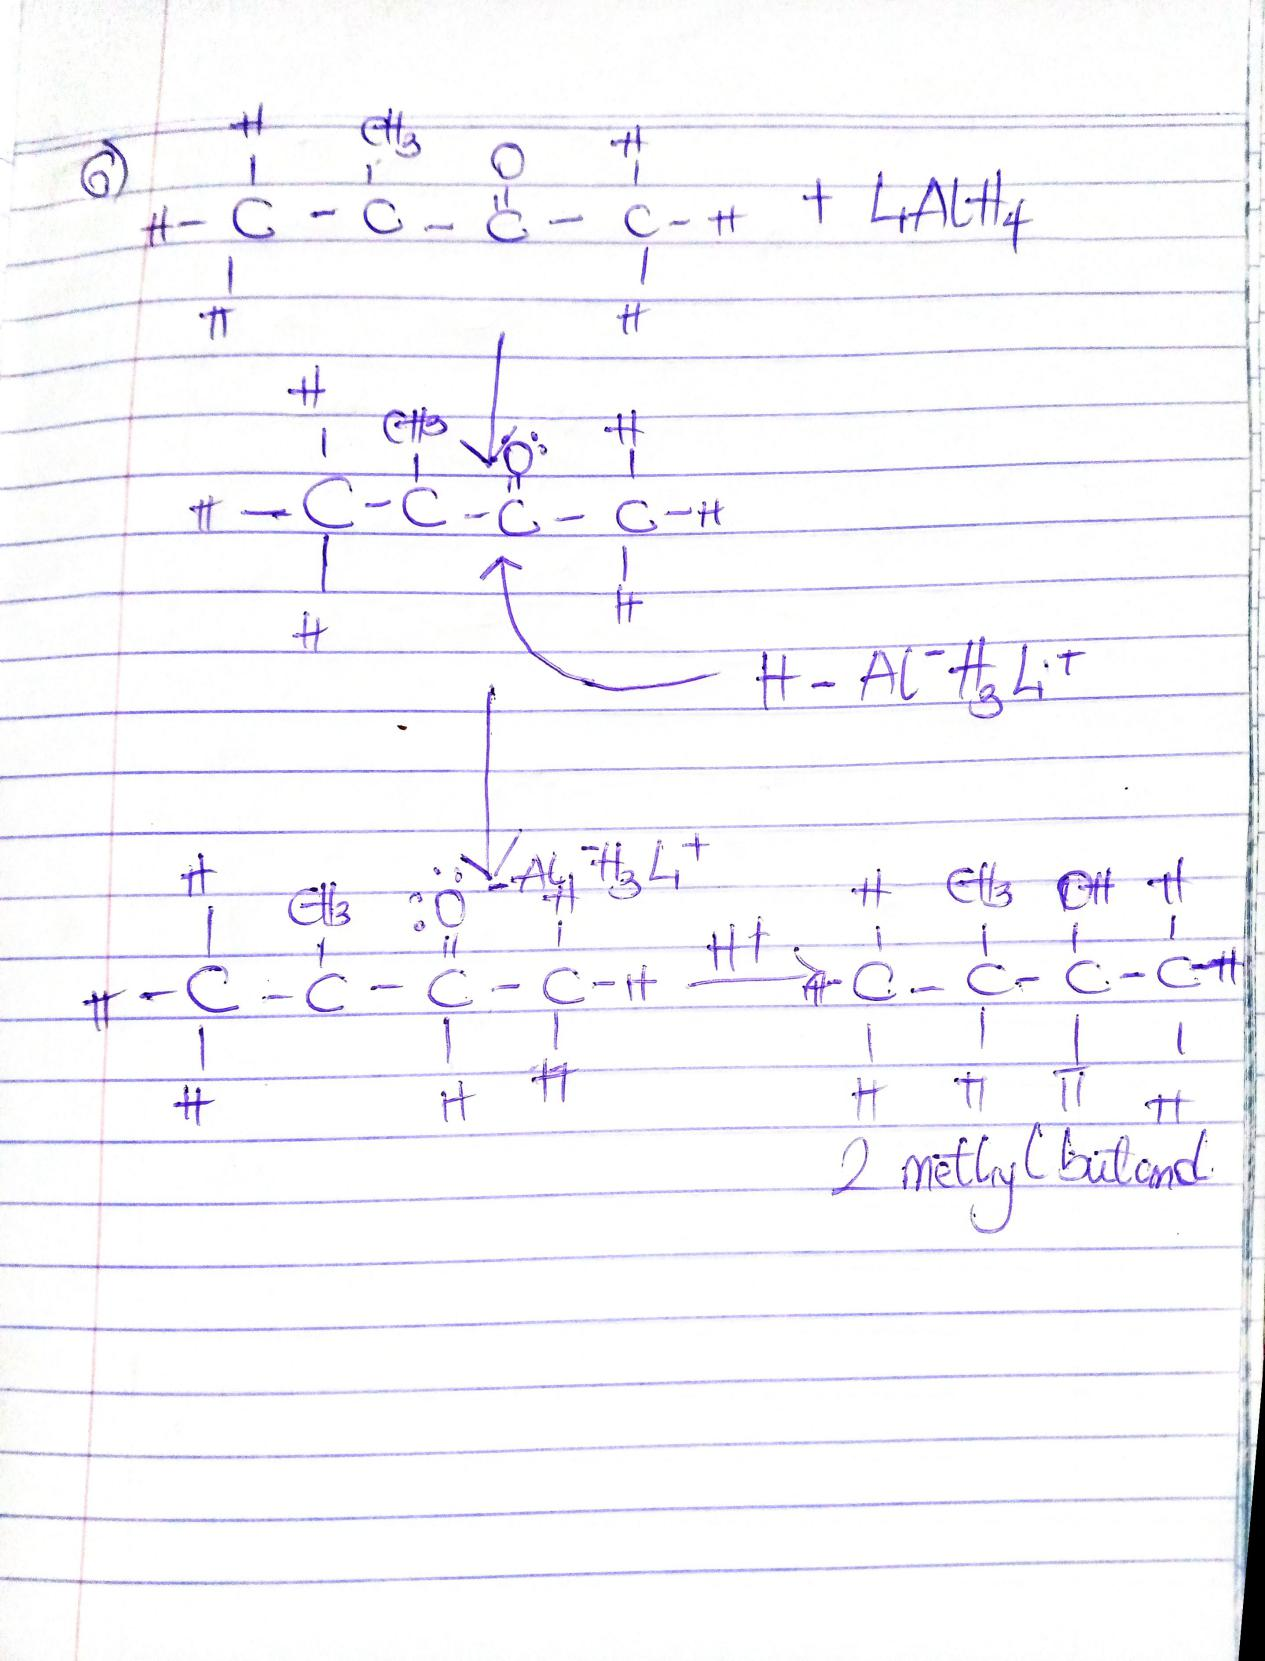 H CH3 O H
6) H - C - C - C - C - H + LiAlH4
H H
H
CH3 O H
H - C - C - C - C - H
H H
H - Al- H3 Li+
H CH3 O - Al- H3 Li+ H H CH3 OH H
H - C - C - C - C - H H+ H - C - C - C - C - H
H H H H H H H
2 methyl butanol